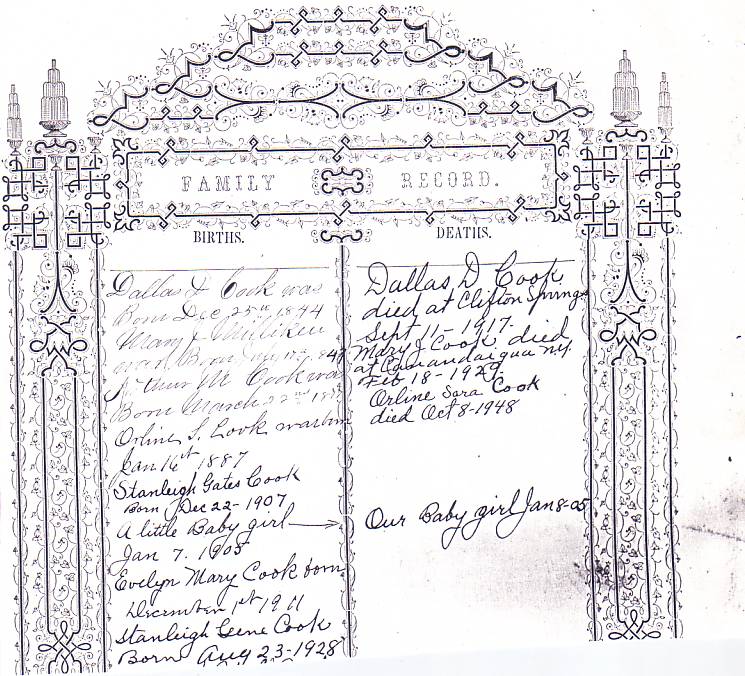 FAMILY RECORD.
BIRTHS.
Dallas D Cook was
Born Dec 25th 1844
Mary J Milliken
was Born 184
Arthur M Cook was
Born March 22nd
Orline S. Cook was born
Jan 16th 1887
Stanleigh Gates Cook
Born Dec 22 - 1907
A little Baby girl
Jan 7. 1905
Evelyn Mary Cook born
December 1st 1911
Stanleigh Gene Cook
Born Aug 23 - 1928
DEATHS.
Dallas D Cook
died at Clifton Springs
Sept 11 - 1917.
Mary J Cook died
at Canandaigua N.Y.
Feb 18 - 1929.
Orline Sara Cook
died Oct 8 - 1948
Our Baby girl Jan 8 - 05